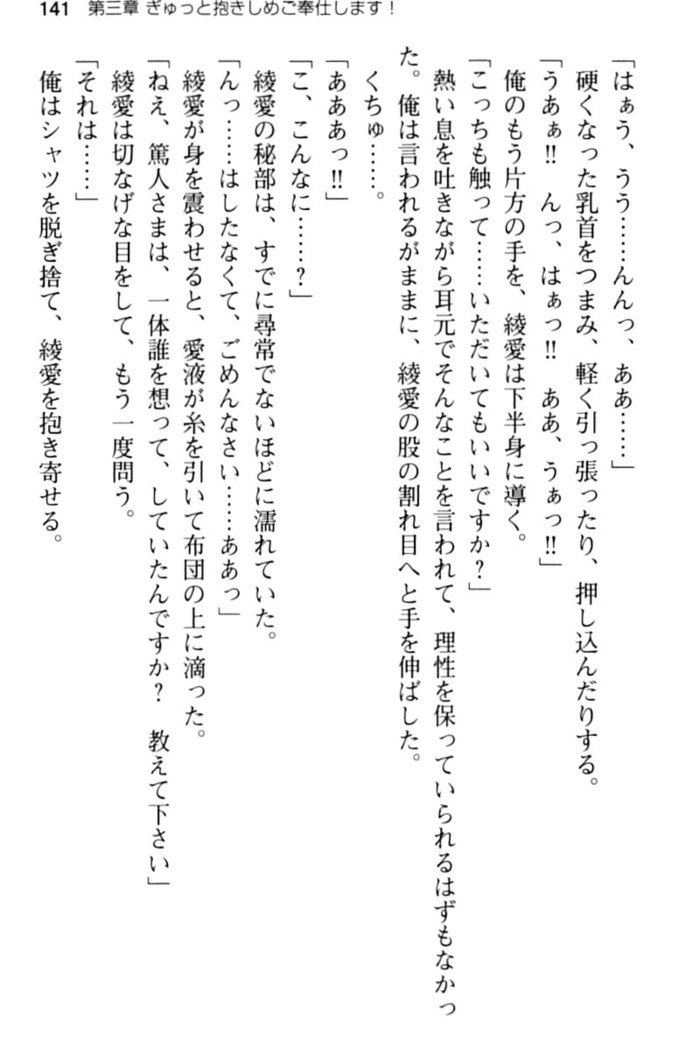 141 第三章 ぎゅっと抱きしめご奉仕します！
「はぁう、うう……んんっ、ああ……」
硬くなった乳首をつまみ、軽く引っ張ったり、押し込んだりする。
「うあぁ!! んっ、はぁっ!! ああ、うぁっ!!」
俺のもう片方の手を、綾愛は下半身に導く。
「こっちも触って……いただいてもいいですか？」
熱い息を吐きながら耳元でそんなことを言われて、理性を保っていられるはずもなかっ
た。俺は言われるがままに、綾愛の股の割れ目へと手を伸ばした。
くちゅ……。
「あああっ!!」
「こ、こんなに……？」
綾愛の秘部は、すでに尋常でないほどに濡れていた。
「んっ……はしたなくて、ごめんなさい……ああっ」
綾愛が身を震わせると、愛液が糸を引いて布団の上に滴った。
「ねえ、篤人さまは、一体誰を想って、していたんですか？　教えて下さい」
綾愛は切なげな目をして、もう一度問う。
「それは……」
俺はシャツを脱ぎ捨て、綾愛を抱き寄せる。